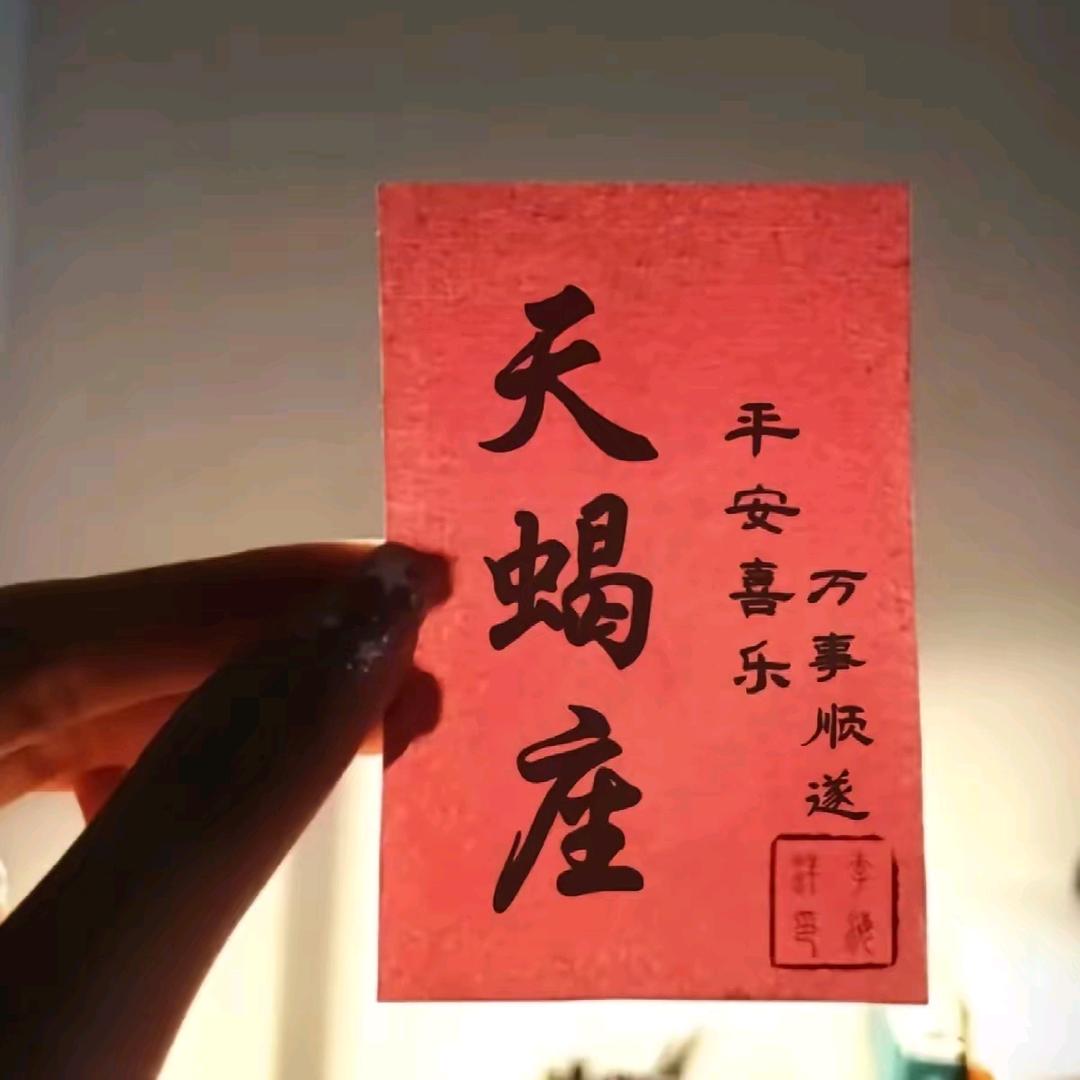 天蝎座
平安喜乐
万事顺遂